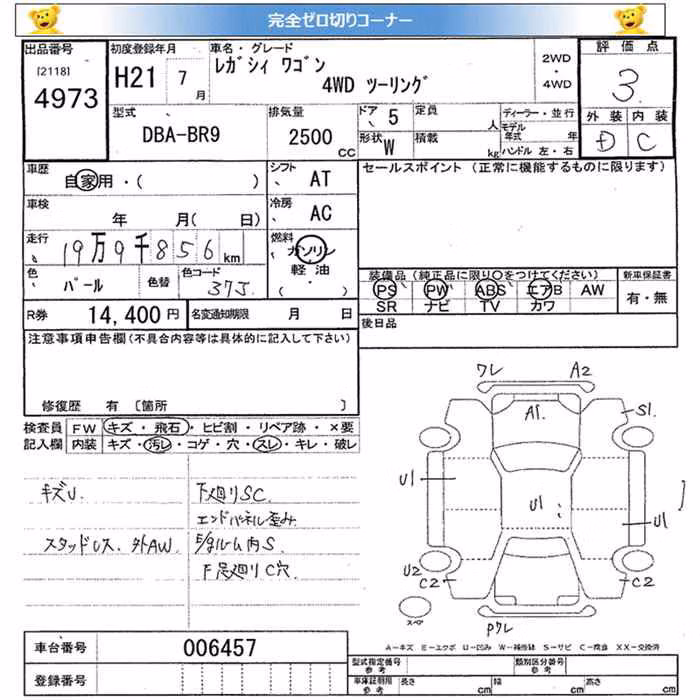 完全ゼロ切りコーナー
出品番号
[2118]
4973
初度登録年月
H21 7月
車名・グレード
レガシィ ワゴン
4WD ツーリング
2WD
・
4WD
評価点
3
外装 内装
D C
型式
DBA-BR9
排気量
2500
CC
ドア 5
形状 W
定員 人
積載 kg
ディーラー・並行
モデル年式 年
ハンドル 左・右
車歴
自家用・( )
シフト
AT
セールスポイント (正常に機能するものに限ります)
車検
年 月( 日)
冷房
AC
走行
19万9千856km
燃料
ガソリン
軽油
( ・ )
色
パール
色替
色コード
37J
装備品 (純正品に限り○をつけてください)
PS PW ABS エアB AW
SR ナビ TV カワ
新車保証書
有・無
R券 14,400円
名変通知期限 月 日
後日品
注意事項申告欄 (不具合内容等は具体的に記入して下さい)
修復歴 有 [箇所 ]
検査員記入欄
FW キズ・飛石・ヒビ割・リペア跡・×要
内装 キズ・汚レ・コゲ・穴・スレ・キレ・破レ
キズU
スタッドレス、外AW
下廻りSC
エンドパネル歪み
E/gルーム内S
F足廻りC穴
ワレ A2
A1 S1
U1 U1 U1
U2
C2 C2
スペア
Pワレ
A−キズ E−エクボ U−凹み W−補修跡 S−サビ C−腐食 XX−交換済
車台番号 006457
登録番号
型式指定番号
参考
類別区分番号
参考
車庫証明用
参考
長さ cm 幅 cm 高さ cm